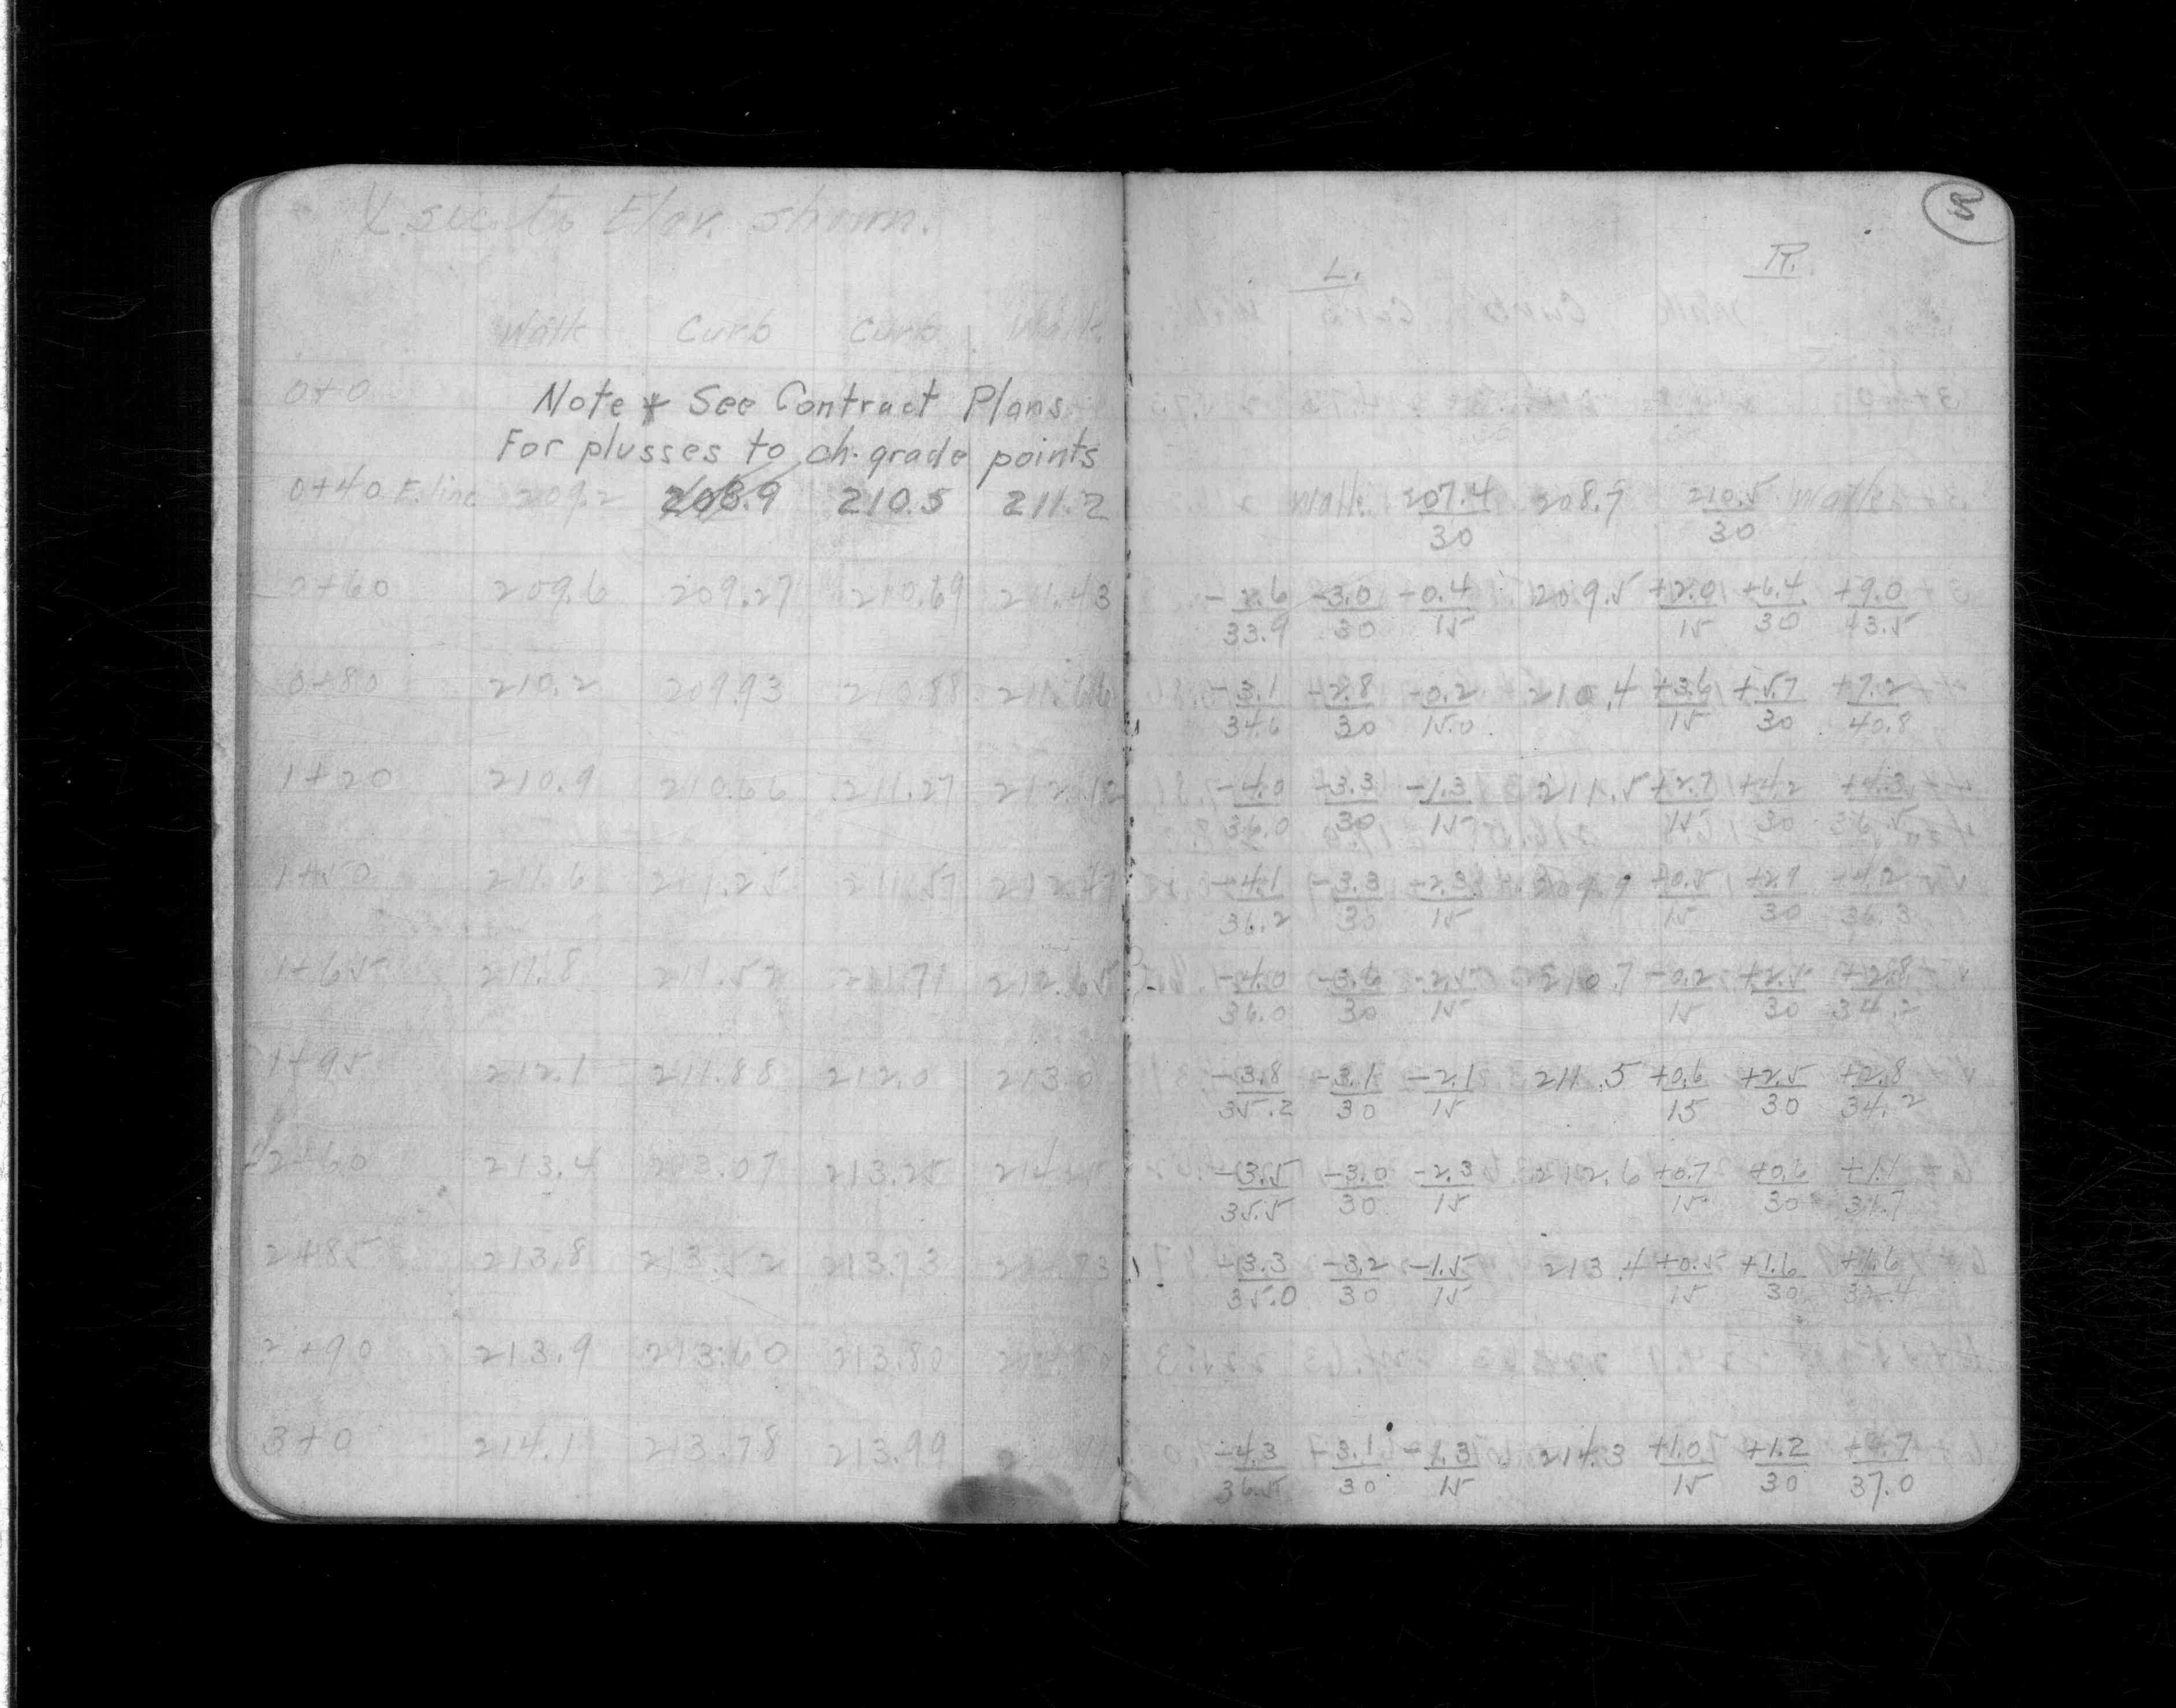 X sec. to Elev. shown.
Walk Curb Curb Walk
0+0
Note * See Contract Plans
For plusses to ch. grade points
0+40 E. line 209.2 208.9 210.5 211.2
0+60 209.6 209.27 210.69 211.43
0+80 210.2 209.93 210.88 211.66
1+20 210.9 210.66 211.27 212.12
1+50 211.6 211.25 211.57 212.47
1+65 211.8 211.52 211.71 212.65
1+95 212.1 211.88 212.0 213.0
2+60 213.4 213.07 213.25
2+85 213.8 213.52 213.73
2+90 213.9 213.60 213.80
3+0 214.1 213.78 213.99
L. R.
Walk 207.4 208.9 210.5 Walk
30 30
-2.6 -3.0 -0.4 209.5 +2.0 +6.4 +9.0
33.9 30 15 15 30 43.5
-3.1 -2.8 -0.2 210.4 +3.6 +5.7 +7.2
34.6 30 15.0 15 30 40.8
-4.0 -3.3 -1.3 211.5 +2.7 +4.2 +4.3
36.0 30 15 15 30 36.5
-4.1 -3.3 -2.3 209.9 +0.5 +2.9 +4.2
36.2 30 15 15 30 36.3
-4.0 -3.6 -2.5 210.7 -0.2 +2.5 +2.8
36.0 30 15 15 30 34.2
-3.8 -3.1 -2.1 211.5 +0.6 +2.5 +2.8
35.2 30 15 15 30 34.2
-3.5 -3.0 -2.3 212.6 +0.7 +0.6 +1.1
35.5 30 15 15 30 31.7
-3.3 -3.2 -1.5 213.4 +0.5 +1.6 +1.6
35.0 30 15 15 30 32.4
-4.3 -3.1 -1.3 214.3 +1.0 +1.2 +4.7
36.5 30 15 15 30 37.0